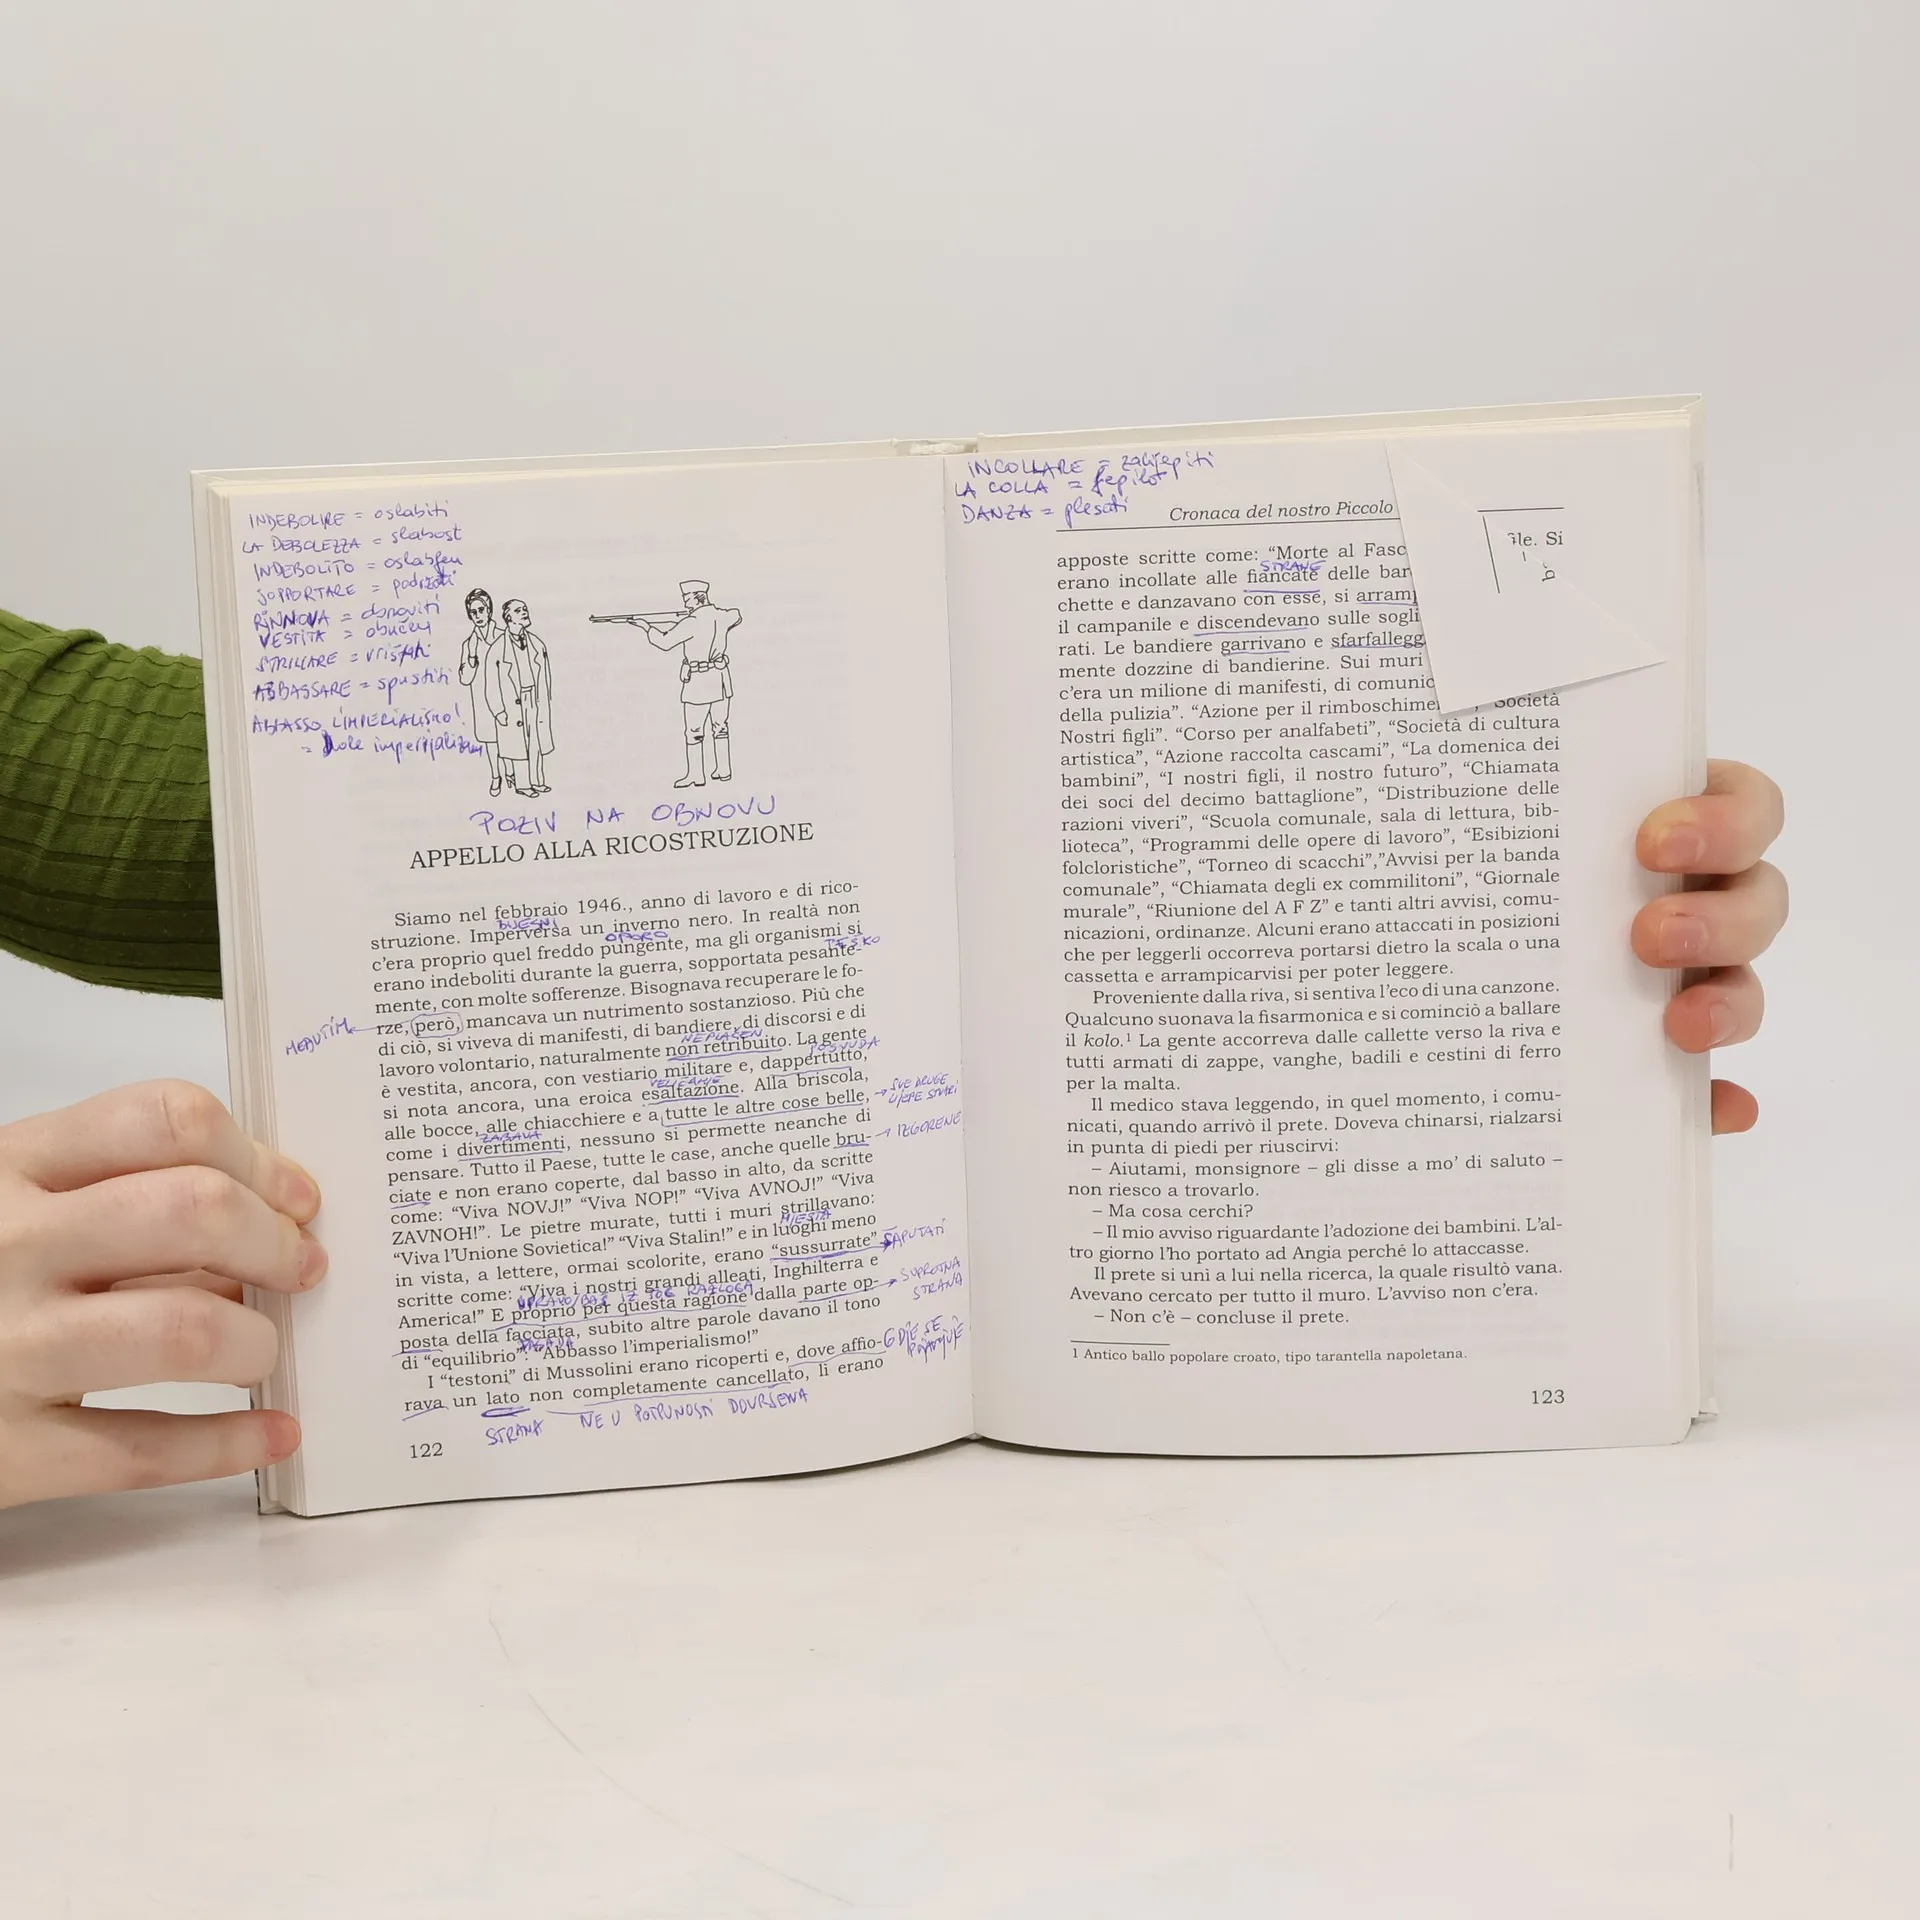 INDEBOLIRE = oslabiti
LA DEBOLEZZA = slabost
INDEBOLITO = oslabljen
SOPPORTARE = podržati
RINNOVA = obnoviti
VESTITA = obučen
STRILLARE = vrištati
ABBASSARE = spustiti
ABBASSO L'IMPERIALISMO!
= Dole imperijalizam
POZIV NA OBNOVU
APPELLO ALLA RICOSTRUZIONE
Siamo nel febbraio 1946., anno di lavoro e di rico-
BIJESNI
struzione. Imperversa un inverno nero. In realtà non
OPORO
c'era proprio quel freddo pungente, ma gli organismi si
TEŠKO
erano indeboliti durante la guerra, sopportata pesante-
mente, con molte sofferenze. Bisognava recuperare le fo-
MEĐUTIM
rze, però, mancava un nutrimento sostanzioso. Più che
di ciò, si viveva di manifesti, di bandiere, di discorsi e di
NEPLAĆEN
lavoro volontario, naturalmente non retribuito. La gente
POSVUDA
è vestita, ancora, con vestiario militare e, dappertutto,
VELIČANJE
si nota ancora, una eroica esaltazione. Alla briscola,
alle bocce, alle chiacchiere e a tutte le altre cose belle,
SVE DRUGE
LIJEPE STVARI
ZABAVA
come i divertimenti, nessuno si permette neanche di
pensare. Tutto il Paese, tutte le case, anche quelle bru-
IZGORENE
ciate e non erano coperte, dal basso in alto, da scritte
come: “Viva NOVJ!” “Viva NOP!” “Viva AVNOJ!” “Viva
ZAVNOH!”. Le pietre murate, tutti i muri strillavano:
MJESTA
“Viva l'Unione Sovietica!” “Viva Stalin!” e in luoghi meno
in vista, a lettere, ormai scolorite, erano “sussurrate”
ŠAPUTATI
scritte come: “Viva i nostri grandi alleati, Inghilterra e
UPRAVO/BAŠ IZ TOG RAZLOGA
America!” E proprio per questa ragione dalla parte op-
SUPROTNA
STRANA
posta della facciata, subito altre parole davano il tono
FASADA
di “equilibrio”: “Abbasso l'imperialismo!”
I “testoni” di Mussolini erano ricoperti e, dove affio-
GDJE SE
rava un lato non completamente cancellato, lì erano
STRANA NE U POTPUNOSTI
122
INCOLLARE = zalijepiti
LA COLLA = ljepilo
DANZA = plesati
Cronaca del nostro Piccolo
apposte scritte come: “Morte al Fasc
STRANE
erano incollate alle fiancate delle bar
chette e danzavano con esse, si arramp
il campanile e discendevano sulle sogli
rati. Le bandiere garrivano e sfarfallegg
mente dozzine di bandierine. Sui muri
c'era un milione di manifesti, di comunic
ile. Si
della pulizia”. “Azione per il rimboschime “Società
Nostri figli”. “Corso per analfabeti”, “Società di cultura
artistica”, “Azione raccolta cascami”, “La domenica dei
bambini”, “I nostri figli, il nostro futuro”, “Chiamata
dei soci del decimo battaglione”, “Distribuzione delle
razioni viveri”, “Scuola comunale, sala di lettura, bib-
lioteca”, “Programmi delle opere di lavoro”, “Esibizioni
folcloristiche”, “Torneo di scacchi”,”Avvisi per la banda
comunale”, “Chiamata degli ex commilitoni”, “Giornale
murale”, “Riunione del A F Z” e tanti altri avvisi, comu-
nicazioni, ordinanze. Alcuni erano attaccati in posizioni
che per leggerli occorreva portarsi dietro la scala o una
cassetta e arrampicarvisi per poter leggere.
Proveniente dalla riva, si sentiva l'eco di una canzone.
Qualcuno suonava la fisarmonica e si cominciò a ballare
il kolo.¹ La gente accorreva dalle callette verso la riva e
tutti armati di zappe, vanghe, badili e cestini di ferro
per la malta.
Il medico stava leggendo, in quel momento, i comu-
nicati, quando arrivò il prete. Doveva chinarsi, rialzarsi
in punta di piedi per riuscirvi:
– Aiutami, monsignore – gli disse a mo' di saluto –
non riesco a trovarlo.
– Ma cosa cerchi?
– Il mio avviso riguardante l'adozione dei bambini. L'al-
tro giorno l'ho portato ad Angia perché lo attaccasse.
Il prete si unì a lui nella ricerca, la quale risultò vana.
Avevano cercato per tutto il muro. L'avviso non c'era.
– Non c'è – concluse il prete.
1 Antico ballo popolare croato, tipo tarantella napoletana.
123